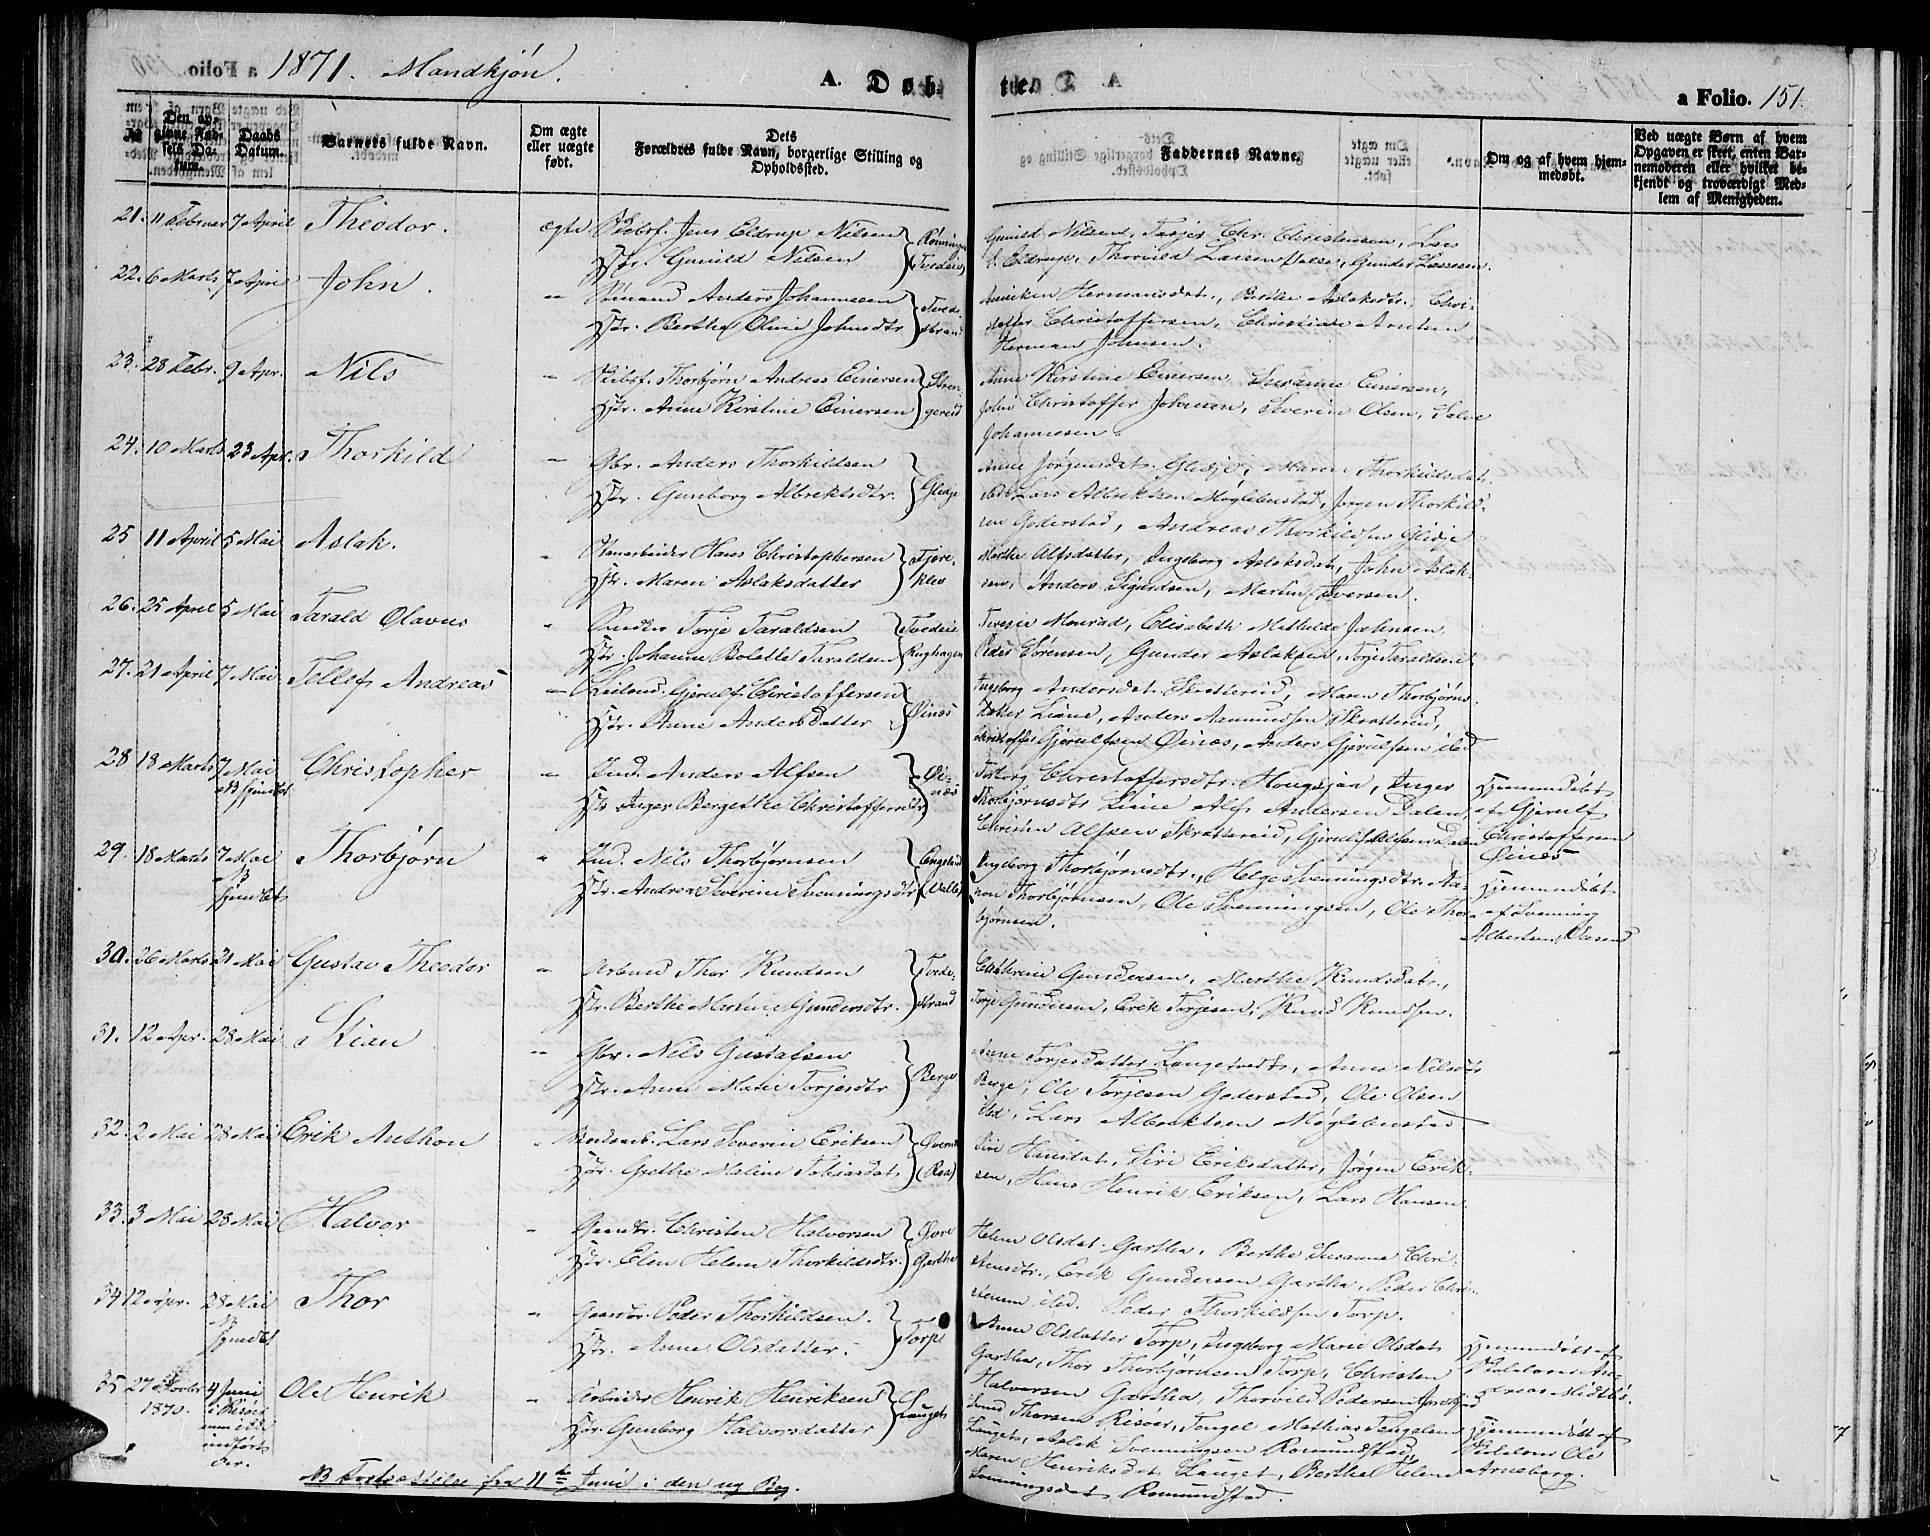 a Folio. 1871. Mandkjøn. A. Døbte. a Folio. 151.
№
Den opgivne Fødsels Datum.
Daabs Datum.
Barnets fulde Navn.
Om ægte eller uægte født.
Dets Forældres fulde Navn, borgerlige Stilling og Opholdssted.
Faddernes Navne.
Om og af hvem hjemmedøbt.
Ved uægte Børn af hvem Opgaven er skeet, enten Barnemoderen eller hvilket bekjendt og troværdigt Medlem af Menigheden.
21. 11 Februar 7 April Theodor. ægte Skibsf. Jens Eldrup Nilsen
Hstr. Gunild Nilsen
Gunild Nilsen, Terjer Chr. Christensen, Lars
Eldrup, Thorvild Larsen, Gunder Lassesen.
22. 6 Marts 7 April John. " Sømand Anders Johannesen
Hstr. Berthe Oline Johnsdtr
Tvedestrand
Anniken Hermansdat., Berthe Aslaksdtr., Chri-
stoffer Christoffersen, Christian Arntsen
Herman Johnsen.
23. 28 Febr. 9 Apr. Nils " Skibsf. Thorbjørn Andreas Einersen
Hstr. Anne Kirstine Einersen
Strengereid
Anne Kirstine Einersen, Susanne Einersen,
John Christoffer Johnsen, Severin Olsen, Salve
Johannesen.
24. 10 Marts 23 Apr. Thorkild " Gbr. Anders Thorkildsen
Hstr. Gunborg Albrektsdtr.
Glidje
Anne Jørgensdat. Glidje, Maren Thorkildsdat.
ibd. Lars Albrektsen Møglebustad, Jørgen Thorkild-
sen Goderstad, Andreas Thorkildsen Glidje
25 11 April 5 Mai Aslak. " Stenarbeider Hans Christophersen
Hstr. Maren Aslaksdatter
Fjære-
klev
Marthe Alfsdatter, Ingeborg Aslaksdat, John Aslak-
sen, Anders Sigurdsen, Martin Iversen.
26. 25 April 5 Mai Tarald Olavus " Snedker Torje Taraldsen
Hstr. Johanne Bolette Taraldsen
Teresie Monrad, Elisabeth Mathilde Jahnsen,
Peder Sørensen, Gunder Aslaksen, Torje Taraldsen
27. 21 April 7 Mai Tellef Andreas " Leilend. Gjerulf Christoffersen
Hstr. Anne Andersdatter
Øinæs
Ingeborg Andersdat. Skrattereid, Maren Thorbjørns-
datter Liane, Anders Aamundsen Skrattereid,
Christoffer Gjerulfsen Øinæs, Anders Gjerulfsen ibd
28 18 Marts 7 Mai
NB hjemdøbt Christopher " Ind. Anders Alfsen
Hstr Inger Bergethe Christoffersdtr
Øinæs
Torborg Christoffersdtr. Hougsjaa, Inger
Thorbjørnsdtr Liane Alf Andersen Dalen,
Christen Alfsen Skrattereid, Gjerulf Alfsen Dalen
Hjemmedøbt
af Gjerulf
Christoffersen
Øinæs
29. 18 Marts 7 Mai
NB
hjemdøbt Thorbjørn " Ind. Nils Thorbjørnsen
Hstr. Andrea Severine Svenningsdtr
Engelund
(Valle)
Ingeborg Thorbjørnsdtr., Helge Svenningsdtr. Aa-
non Thorbjørnsen, Ole Svenningsen, Ole Thor-
bjørnsen.
Hjemmedøbt
af Svenning
Albertsen
30. 26 Marts 21 Mai Gustav Theodor " Arbmd Thor Knudsen
Hstr. Berthe Marine Gundersdtr.
Tvede-
strand
Cathrine Gundersen, Marthe Knudsdat.,
Torje Gundersen, Erik Terjesen, Knud Knudsen.
31. 12 Apr. 28 Mai Stian " Gbr. Nils Gustafsen
Hstr. Anne Marie Torjesdtr
Berge
Anne Torjesdatter Langetvedt, Anne Nilsdtr
Berge, Ole Torjesen Goderstad, Ole Olsen
ibd, Lars Albrektsen Møglebustad
32. 2 Mai 28 Mai Erik Anthon " Bordsarb. Lars Severin Eriksen
Hstr. Grethe Maline Tobiasdat.
(Raa)
Siri Hansdat, Siri Eriksdatter, Jørgen Erik-
sen, Hans Henrik Eriksen, Lars Hansen
33. 3 Mai 28 Mai Halvor " Gaardbr. Christen Halvorsen
Hstr. Elen Helene Thorkildsdtr.
Øvre
Gartha
Helene Olsdat. Gartha, Berthe Susanne Chri-
stensdtr., Erik Gundersen Gartha, Peder Chri-
stensen ibd. Peder Thorkildsen Torp.
34 12 Apr. 28 Mai
NB
hjemdøbt Thor " Gaardbr. Peder Thorkildsen.
Hstr. Anne Olsdatter.
Torp
Anne Olsdatter Torp, Ingeborg Marie Olsdat
Gartha, Thor Thorbjørnsen Torp, Christen
Halvorsen Gartha, Thorvild Pedersen
Hjemmedøbt af
35 27 Novbr
1870. 4 Juni
i Risøer
men ikke
indført
der. Ole Henrik " Arbeider Henrik Henriksen
Hstr. Gunborg Halvorsdatter
Lauget
Thorsen Risøer, Tengel Mathias Tengelsen
Lauget, Aslak Svenningsen Romundstad
Maren Henriksdat Lauget, Berthe Helene
Svenningsdat Romundstad.
Hjemmedøbt af
Ole
Arneberg.
NB Fortsættelse fra 11te Juni i den ny Bog.